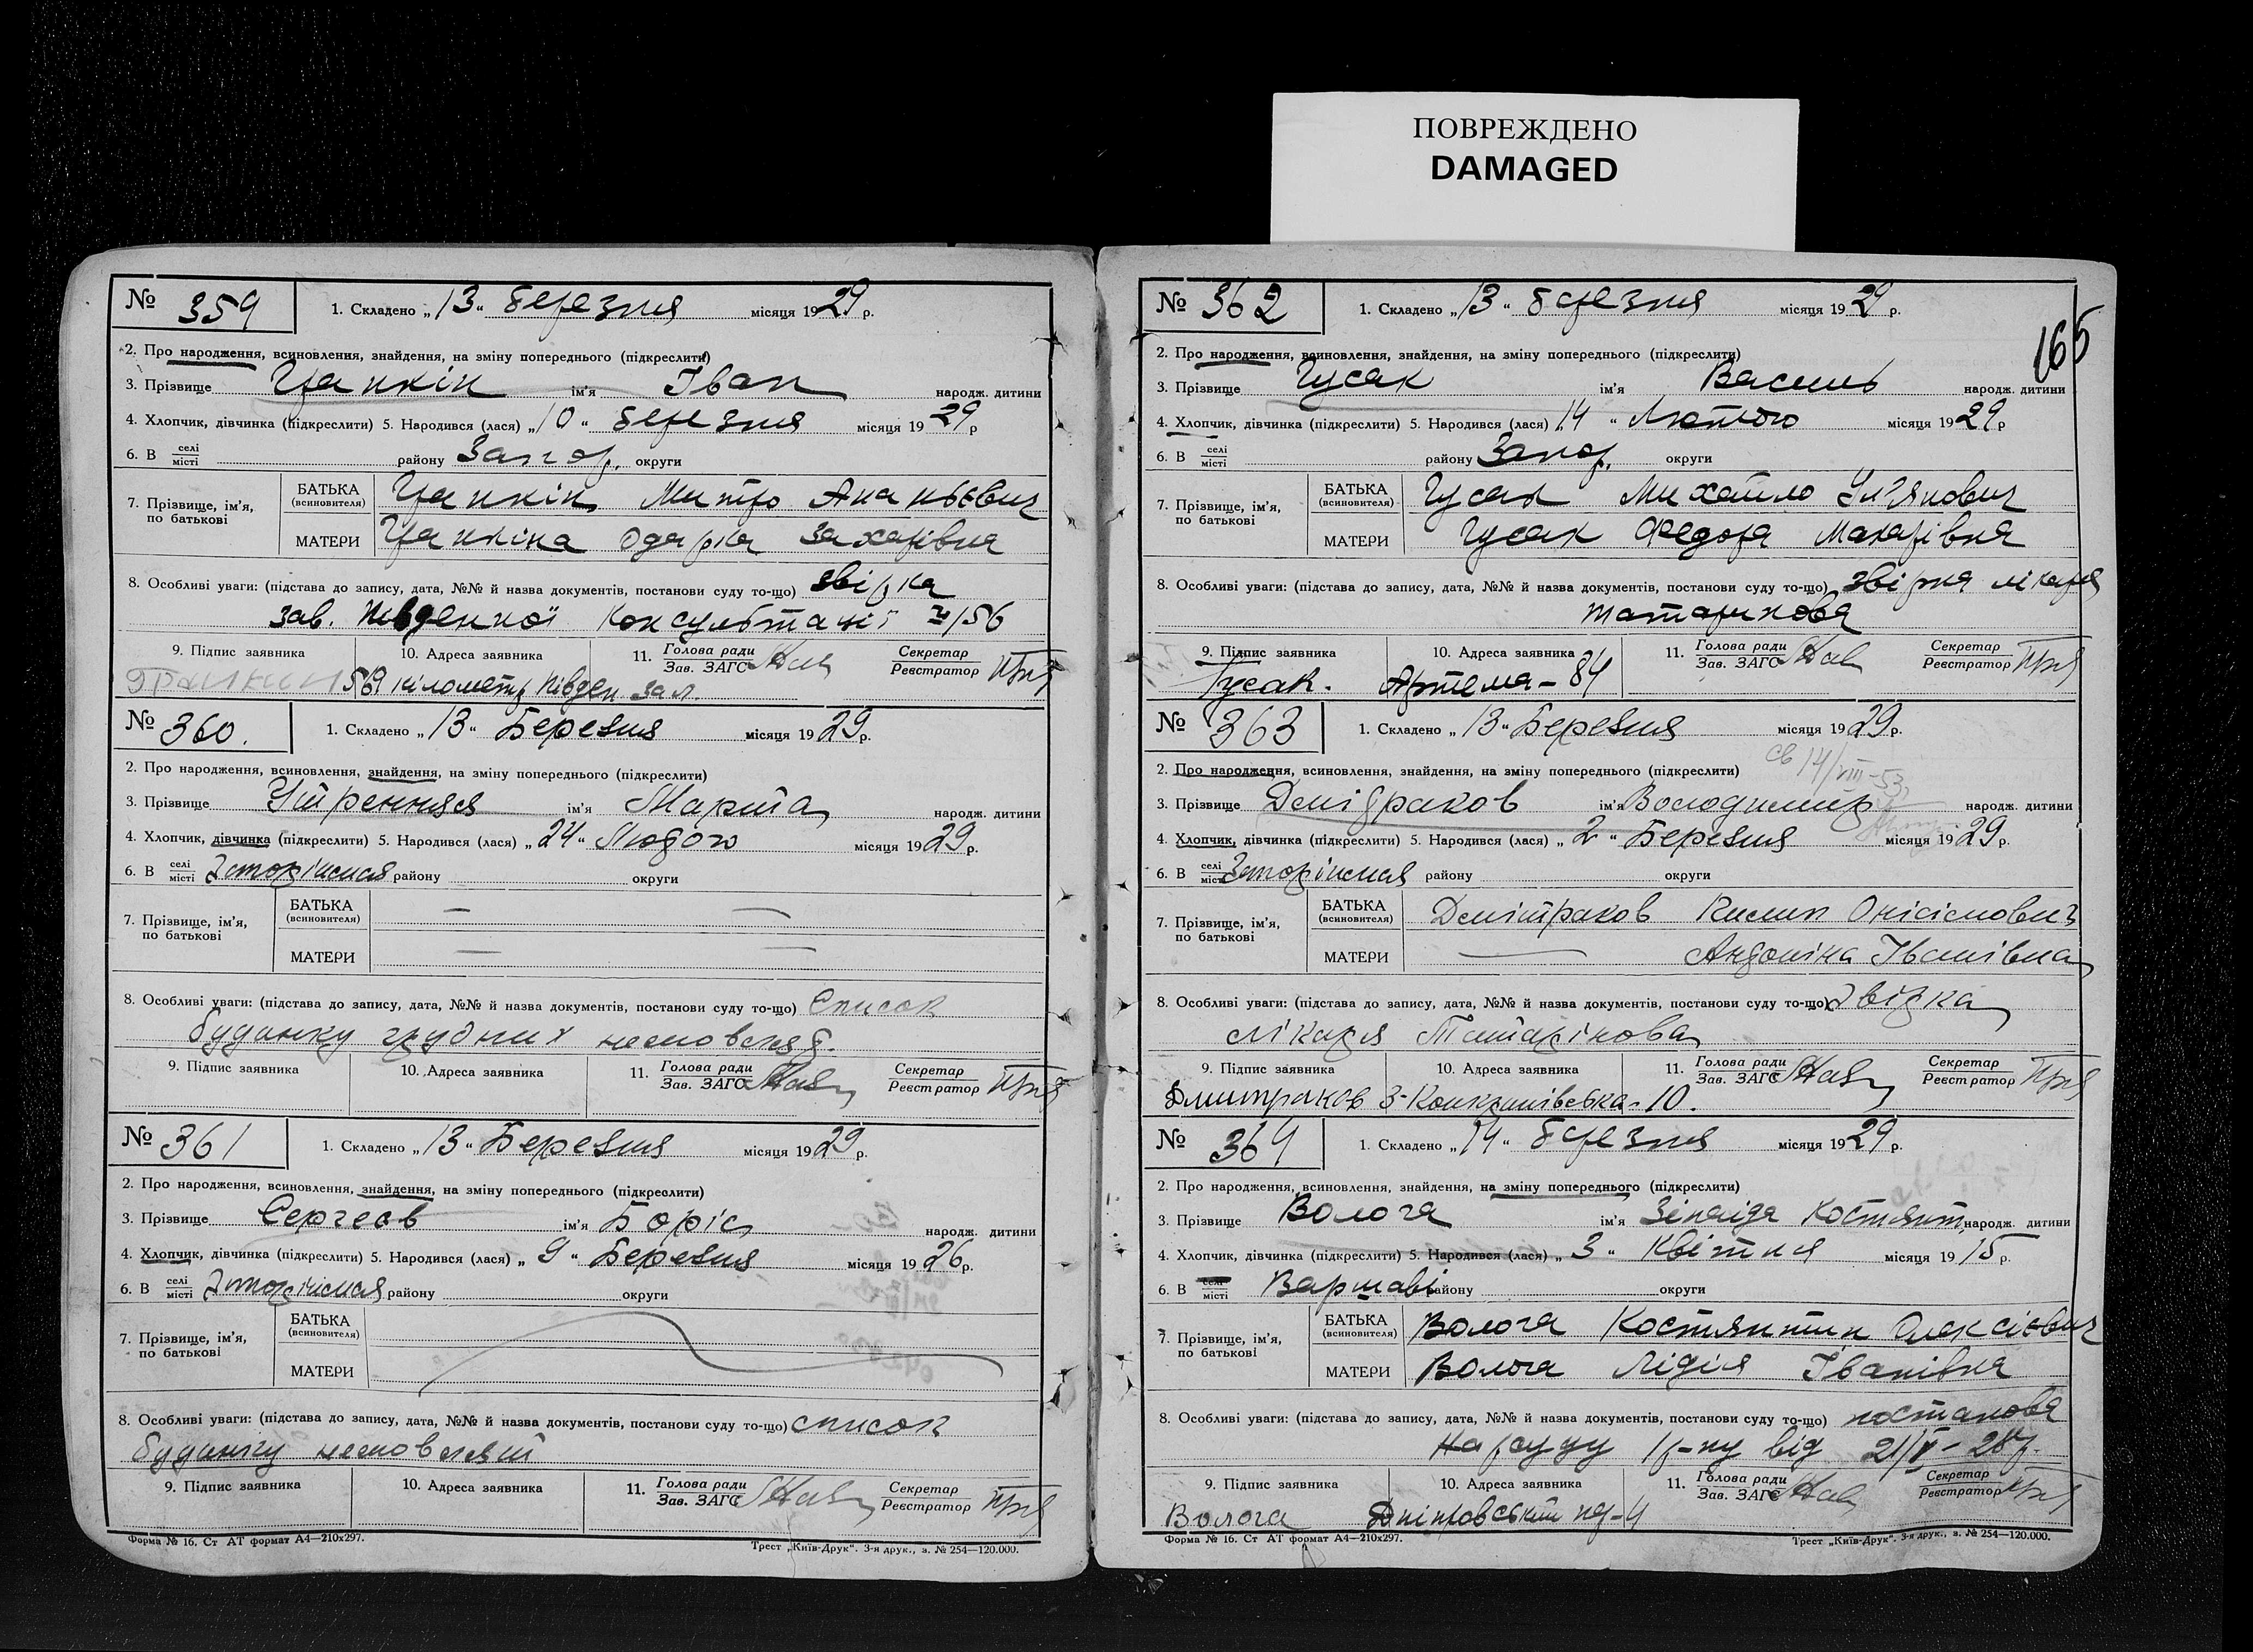 ПОВРЕЖДЕНО
DAMAGED
№ 359
1. Складено „13“ березня місяця 1929 р.
2. Про народження, всиновлення, знайдення, на зміну попереднього (підкреслити)
3. Прізвище Цапкін ім'я Іван народж. дитини
4. Хлопчик, дівчинка (підкреслити) 5. Народився (лася) „10“ березня місяця 1929 р
6. В селі місті району Запор. округи
7. Прізвище, ім'я, по батькові
БАТЬКА (всиновителя) Цапкін Митро Ананьєвич
МАТЕРИ Цапкіна Одарка Захарівна
8. Особливі уваги: (підстава до запису, дата, №№ й назва документів, постанови суду то-що) звірка
зав. Південної консультації №156
9. Підпис заявника 10. Адреса заявника 11. Голова ради Зав. ЗАГС Секретар Реєстратор
569 кілометр Півден. зал.
№ 360.
1. Складено „13“ Березня місяця 1929 р.
2. Про народження, всиновлення, знайдення, на зміну попереднього (підкреслити)
3. Прізвище Утрення ім'я Марта народж. дитини
4. Хлопчик, дівчинка (підкреслити) 5. Народився (лася) „24“ Лютого місяця 1929 р.
6. В селі місті району округи
7. Прізвище, ім'я, по батькові
БАТЬКА (всиновителя) — —
МАТЕРИ — —
8. Особливі уваги: (підстава до запису, дата, №№ й назва документів, постанови суду то-що) Список
буданку грудних немовлят.
9. Підпис заявника 10. Адреса заявника 11. Голова ради Зав. ЗАГС Секретар Реєстратор
№ 361
1. Складено „13“ Березня місяця 1929 р.
2. Про народження, всиновлення, знайдення, на зміну попереднього (підкреслити)
3. Прізвище Сергеєв ім'я Боріс народж. дитини
4. Хлопчик, дівчинка (підкреслити) 5. Народився (лася) „9“ Березня місяця 1926 р.
6. В селі місті району округи
7. Прізвище, ім'я, по батькові
БАТЬКА (всиновителя)
МАТЕРИ
8. Особливі уваги: (підстава до запису, дата, №№ й назва документів, постанови суду то-що) список
буданку немовлят
9. Підпис заявника 10. Адреса заявника 11. Голова ради Зав. ЗАГС Секретар Реєстратор
Форма № 16. Ст АТ формат А4—210х297. Трест „Київ-Друк“. 3-я друк., з. № 254—120.000.
165
№ 362
1. Складено „13“ березня місяця 1929 р.
2. Про народження, всиновлення, знайдення, на зміну попереднього (підкреслити)
3. Прізвище Гусак ім'я Василь народж. дитини
4. Хлопчик, дівчинка (підкреслити) 5. Народився (лася) 14 “ Лютого місяця 1929 р
6. В селі місті району Запор. округи
7. Прізвище, ім'я, по батькові
БАТЬКА (всиновителя) Гусак Михайло Улянович
МАТЕРИ Гусак Федора Макарівна
8. Особливі уваги: (підстава до запису, дата, №№ й назва документів, постанови суду то-що) звірка лікаря
Татарінова
9. Підпис заявника 10. Адреса заявника 11. Голова ради Зав. ЗАГС Секретар Реєстратор
Гусак. Артема – 84
№ 363
1. Складено „13“ Березня місяця 1929 р.
св 14/VIII-53
2. Про народження, всиновлення, знайдення, на зміну попереднього (підкреслити)
3. Прізвище Демідраков ім'я Володимир народж. дитини
4. Хлопчик, дівчинка (підкреслити) 5. Народився (лася) „2“ Березня місяця 1929 р.
6. В селі місті району округи
7. Прізвище, ім'я, по батькові
БАТЬКА (всиновителя) Демітраков Онісімович
МАТЕРИ — Андоніна Іванівна
8. Особливі уваги: (підстава до запису, дата, №№ й назва документів, постанови суду то-що) Звідка
лікаря Татарінова
9. Підпис заявника 10. Адреса заявника 11. Голова ради Зав. ЗАГС Секретар Реєстратор
Дмитраков 10.
№ 364
1. Складено „14“ березня місяця 1929 р.
2. Про народження, всиновлення, знайдення, на зміну попереднього (підкреслити)
3. Прізвище Волога ім'я Зінаїда Костянт. народж. дитини
4. Хлопчик, дівчинка (підкреслити) 5. Народився (лася) „3“ Квітня місяця 1915 р.
6. В селі місті Варшаві району округи
7. Прізвище, ім'я, по батькові
БАТЬКА (всиновителя) Волога Костянтин Олексієвич
МАТЕРИ Волога Лідія Іванівна
8. Особливі уваги: (підстава до запису, дата, №№ й назва документів, постанови суду то-що) постанова
Нарсуду 1р-ну від 21/V – 28р.
9. Підпис заявника 10. Адреса заявника 11. Голова ради Зав. ЗАГС Секретар Реєстратор
Волога Дніпровський
Форма № 16. Ст АТ формат А4—210х297. Трест „Київ-Друк“. 3-я друк., з. № 254—120.000.